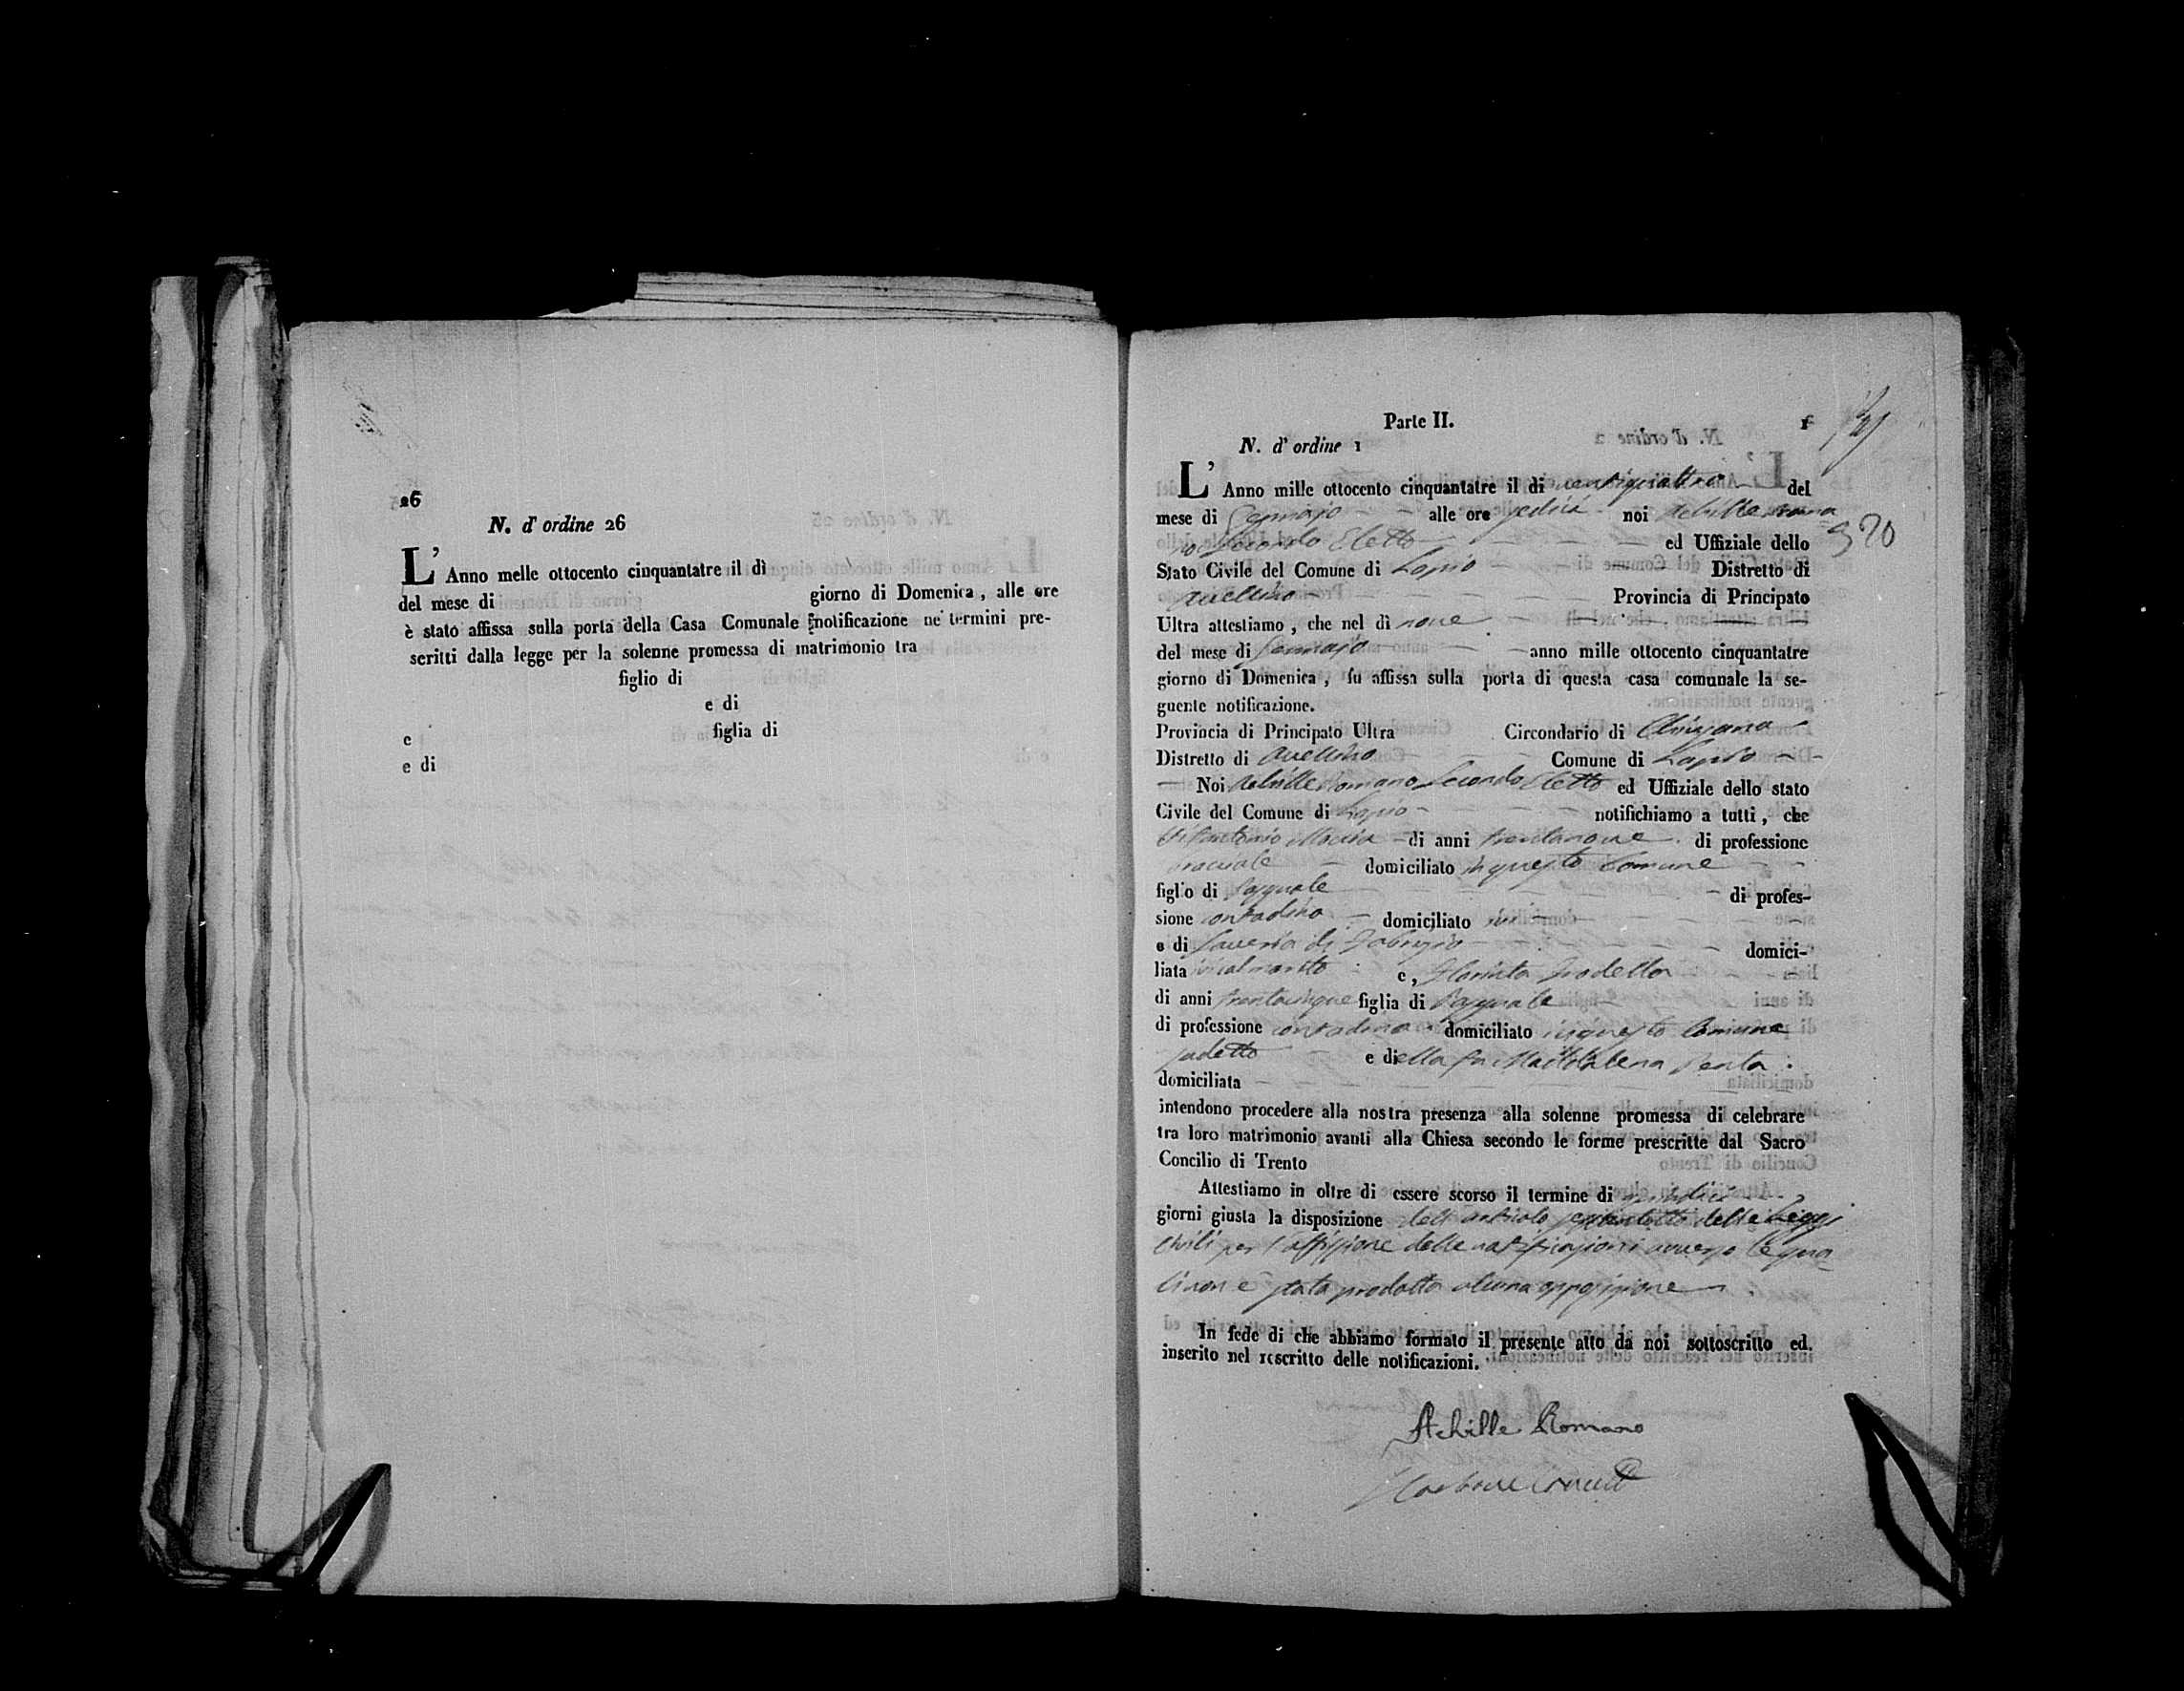 26
N. d' ordine 26
L' Anno melle ottocento cinquantatre il dì
del mese di giorno di Domenica, alle ore
è stato affissa sulla porta della Casa Comunale notificazione ne' termini pre-
scritti dalla legge per la solenne promessa di matrimonio tra
figlio di
e di
e figlia di
e di
Parte II. 1
N. d' ordine 1
L' Anno mille ottocento cinquantatre il di ventiquattro del
mese di Gennajo alle ore sedici noi Achille Roma
no Secondo Eletto ed Uffiziale dello
520
Stato Civile del Comune di Lapio Distretto di
Avellino Provincia di Principato
Ultra attestiamo, che nel dì nove
del mese di Gennajo anno mille ottocento cinquantatre
giorno di Domenica, fu affissa sulla porta di questa casa comunale la se-
guente notificazione.
Provincia di Principato Ultra Circondario di
Distretto di Avellino Comune di Lapio
Noi Achille Romano Secondo Eletto ed Uffiziale dello stato
Civile del Comune di Lapio notifichiamo a tutti, che
di anni trentanove di professione
domiciliato in questo Comune
figlio di Pasquale di profes-
sione contadino domiciliato ivi
e di Saveria di domici-
liata col marito e,
di anni trentacinque figlia di Pasquale
di professione contadino domiciliato in questo Comune
sudetto e della fu Maddalena Penta
domiciliata
intendono procedere alla nostra presenza alla solenne promessa di celebrare
tra loro matrimonio avanti alla Chiesa secondo le forme prescritte dal Sacro
Concilio di Trento
Attestiamo in oltre di essere scorso il termine di quindici
giorni giusta la disposizione dell articolo settantotto delle Leggi
Civili per l'affissione delle notificazioni avverso le qua
li non è stata prodotta alcuna opposizione
In fede di che abbiamo formato il presente atto da noi sottoscritto ed.
inserito nel rescritto delle notificazioni.
Achille Romano